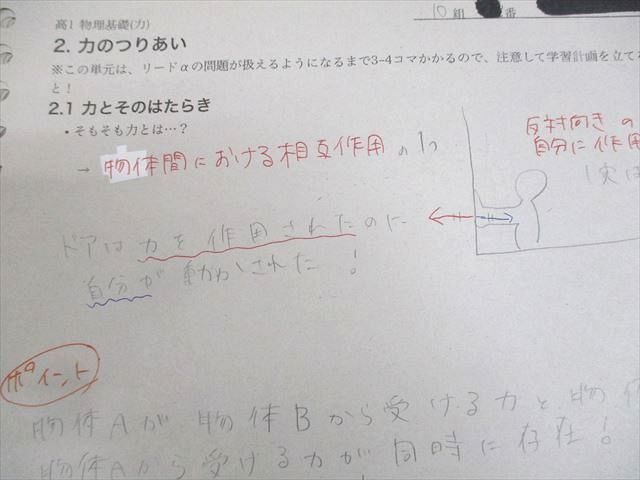 高1 物理基礎(力)
10 組 番
2. 力のつりあい
※この単元は、リードαの問題が扱えるようになるまで3-4コマかかるので、注意して学習計画を立て
と!
2.1 力とそのはたらき
・そもそも力とは…?
→ 物体間における相互作用 の1つ
反対向きの
自分に作用
ドアは力を作用されたのに
自分が動かされた!
ポイント
物体Aが物体Bから受ける力と物
物体Aから受ける力が同時に存在!